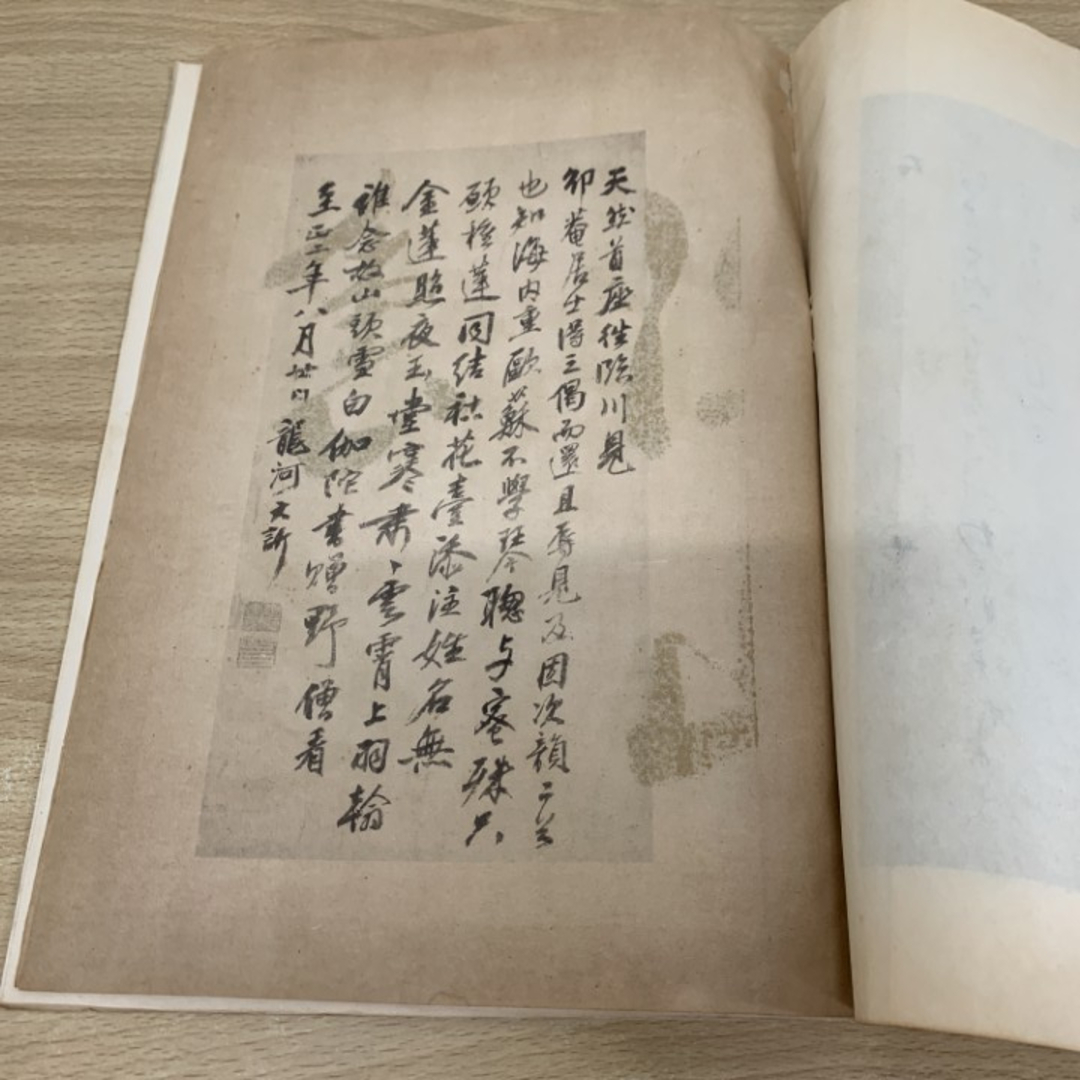 天然首座往臨川見
邵菴居士得三偈而還且辱見及因次韻二首
也知海内重歐蘇不學琴聰與蜜殊只
願種蓮同結社花臺添注姓名無
金蓮照夜玉堂寒肅、雲霄上羽翰
誰念故山頭雪白伽陀書贈野僧看
至正二年八月廿日龍河大訢